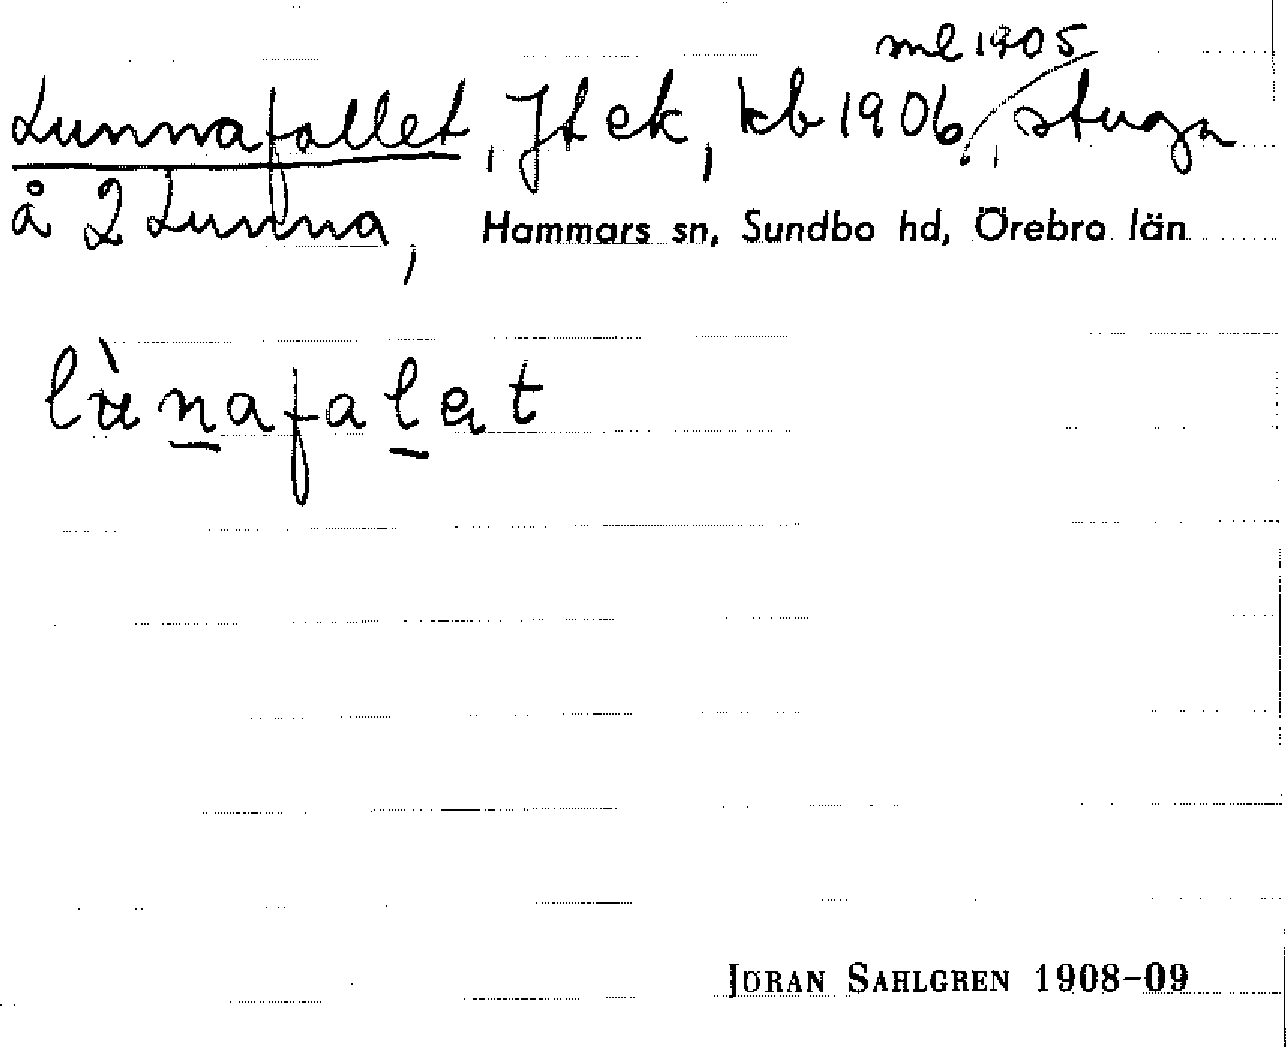 ml 1905
Lunnafallet, Jt ek, kb 1906, stuga
å 2 Lunna, Hammars sn, Sundbo hd, Örebro län
JÖRAN SAHLGREN 1908–09